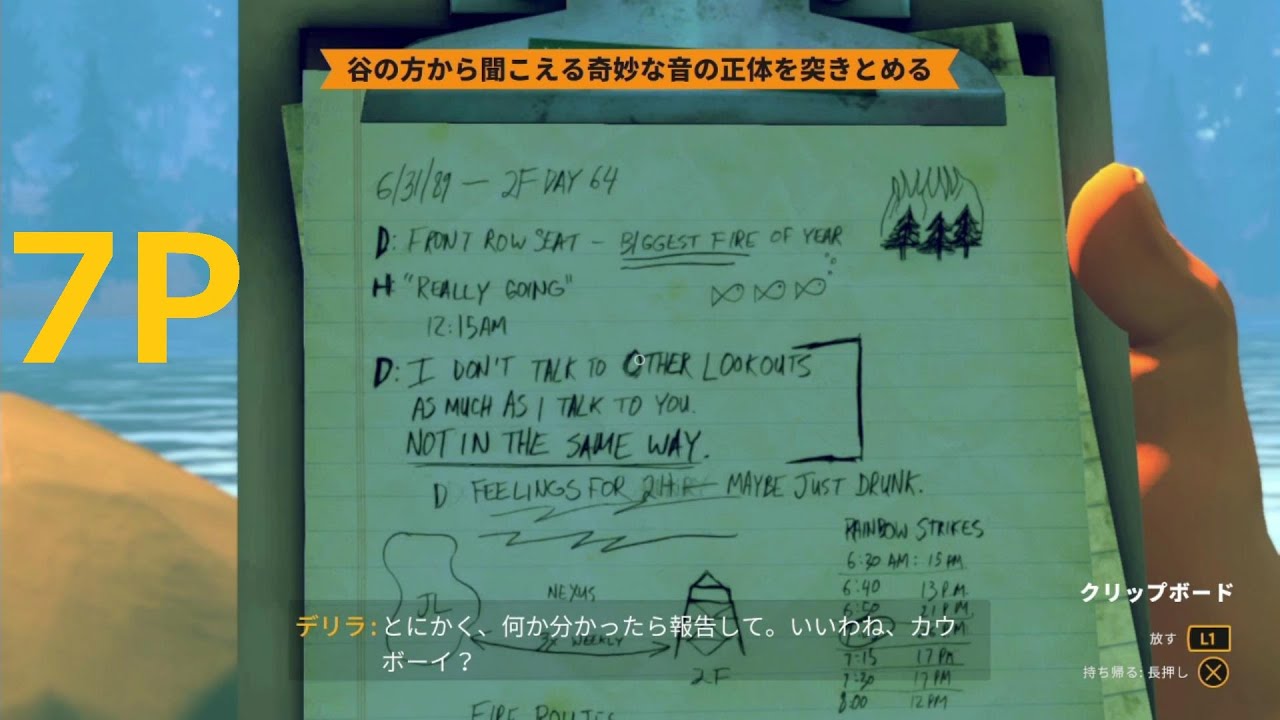 谷の方から聞こえる奇妙な音の正体を突きとめる
7P
6/31/89 — 2F DAY 64
D: FRONT ROW SEAT – BIGGEST FIRE OF YEAR
H: "REALLY GOING"
12:15AM
D: I DON'T TALK TO OTHER LOOKOUTS
AS MUCH AS I TALK TO YOU.
NOT IN THE SAME WAY.
D FEELINGS FOR MAYBE JUST DRUNK.
RAINBOW STRIKES
6:30 AM: 15PM
6:40 13PM
6:50 21PM
7:15 17PM
7:30 17PM
8:00 12PM
JL
NEXUS
3x WEEKLY
2F
FIRE ROUTES
デリラ:とにかく、何か分かったら報告して。いいわね、カウ
ボーイ?
クリップボード
放す L1
持ち帰る:長押し